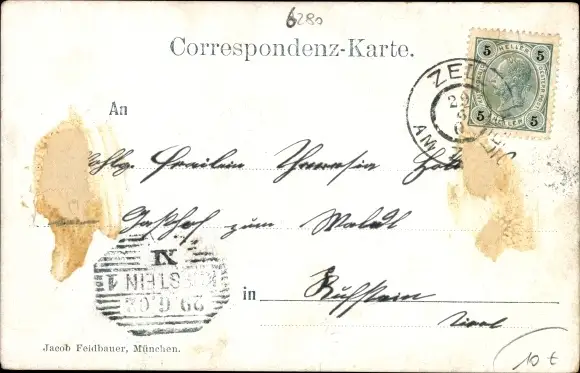 6280
Correspondenz-Karte.
5 HELLER 5
5 HELLER 5
ZELL
29
6
AM Z
An
Fräulein Theresia
Gasthof zum Waldl
XI
KUFSTEIN 1
29.6.02
in Kufstein
Tirol
Jacob Feldbauer, München.
10 €